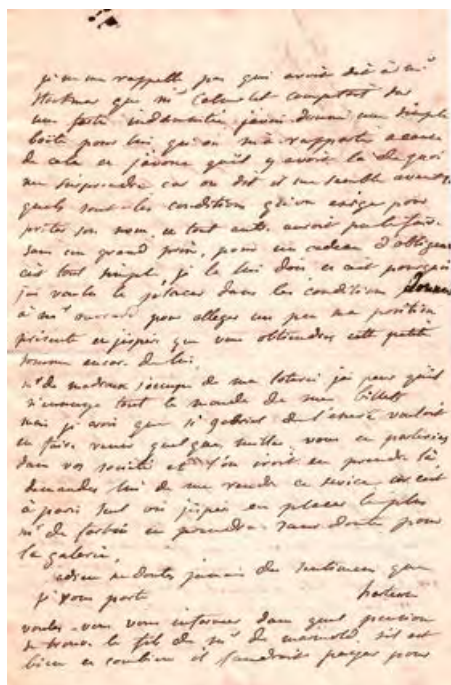 je ne me rappelle pas qui avoit dit à mr
que mr comptoit sur
une forte indemnité, j'avois donné une simple
boîte pour lui, qu'on m'a rapportée a cause
de cela et j'avoue qu'il y avoit là de quoi
me surprendre car on dit il me semble avant
quels sont les conditions qu'on exige pour
prêter son nom, un tout autre auroit pu le faire
sans un grand prix, pour un cadeau d'obligeance
c'est tout simple je le lui dois et c'est pourquoi
j'ai voulu le placer dans les conditions
à mr pour alleger un peu ma position
présente et j'espere que vous obtiendrez cette petite
somme encore de lui,
mr de s'occupe de ma loterie j'ai peur qu'il
n'ennuye tout le monde de mes billets
mais je crois que si gabriel vouloit
en faire venir quelques mille, vous en parleriez
dans vos sociétés et l'on iroit en prendre là
demandez lui de me rendre ce service car c'est
à paris seul où j'espere en placer le plus
mr de forbin en prendra sans doute pour
la galerie,
adieu ne doutez jamais des sentimens que
je vous porte hortense
voulez-vous vous informer dans quel pension
se trouve le fils de mr de s'il est
bien et combien il faudroit payer pour